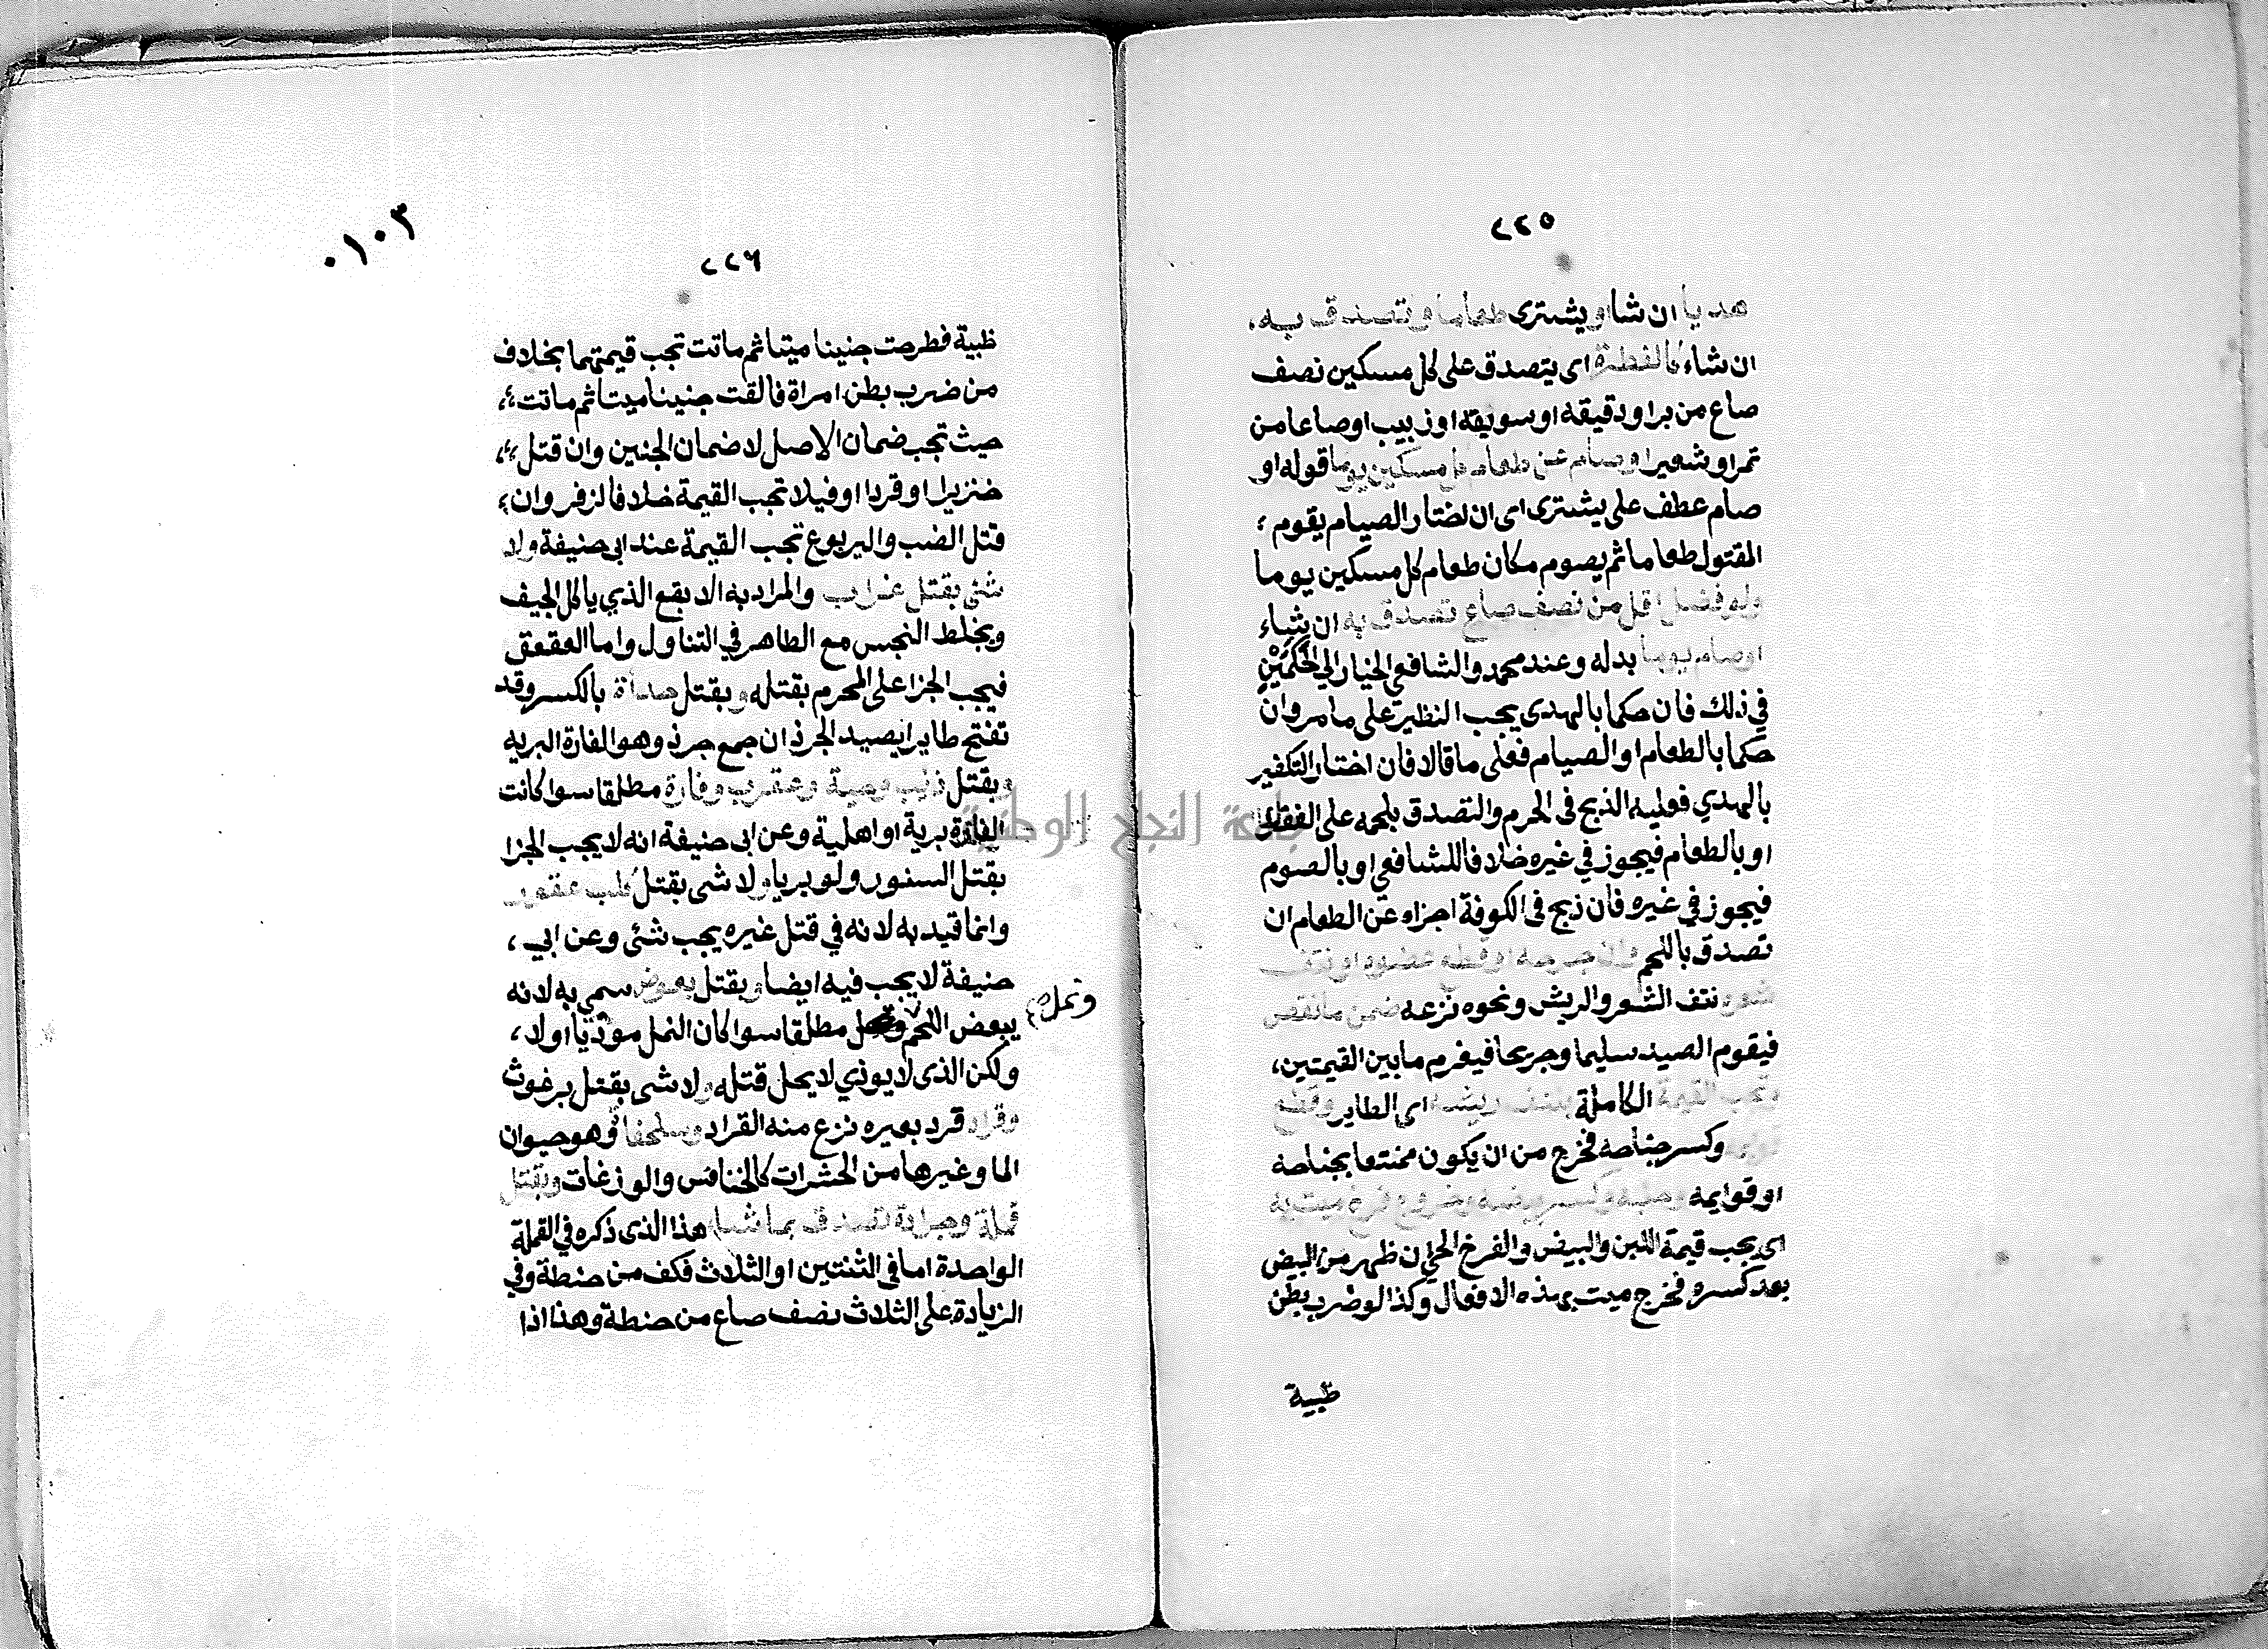 ٢٢٥
هديا ان شا او يشترى طعاما وتصدق به
ان شاء كالفطرة اى يتصدق على كل مسكين نصف
صاع من بر او دقيقه او سويقه او زبيب او صاعا من
تمر او شعير او صام عن طعام كل مسكين يوما قوله او
صام عطف على يشترى اى ان اختار الصيام يقوم
المقتول طعاما ثم يصوم مكان طعام كل مسكين يوما
ولو فضل اقل من نصف صاع تصدق به ان شاء
او صام يوما بدله وعند محمد والشافعي الخيار الي الحَكَمَيْنِ
في ذلك فان حكما بالهدى يجب النظير على ما مر وان
حكما بالطعام او الصيام فعلى ما قالا فان اختار التكفير
بالهدي فعليه الذبح فى الحرم والتصدق بلحمه على الفقراء
او بالطعام فيجوز في غيره خلافا للشافعي او بالصوم
فيجوز في غيره فان ذبح فى الكوفة اجزاه عن الطعام ان
تصدق باللحم وان جرحه او قطع عضوه او نتف
شعره نتف الشعر والريش ونحوه نزعه ضمن ما نقص
فيقوم الصيد سليما وجريحا فيغرم ما بين القيمتين،
وتجب القيمة الكاملة بنتف ريشه اى الطاير وقطع
قوايمه وكسر جناحه فخرج من ان يكون ممتنعا بجناحه
او قوايمه وحلبه وكسر بيضه وخروج فرخ ميت به
اى يجب قيمة اللبن والبيض والفرخ الحي ان ظهر من البيض
بعد كسره فخرج ميت بهذه الافعال وكذا لو ضرب بطن
ظبية
٠١٠٣
٢٢٦
ظبية فطرحت جنينا ميتا ثم ماتت تجب قيمتهما بخلاف
من ضرب بطن امراة فالقت جنينا ميتا ثم ماتت
حيث تجب ضمان الاصل لا ضمان الجنين وان قتل
خنزيرا او قردا او فيلا تجب القيمة خلافا لزفر وان
قتل الضب واليربوع تجب القيمة عند ابى حنيفة ولا
شئ بقتل غراب والمراد به الابقع الذي ياكل الجيف
ويخلط النجس مع الطاهر في التناول واما العقعق
فيجب الجزا على المحرم بقتله وبقتل حدأة بالكسر وقد
تفتح طاير ايصيد الجرذان جمع جرذ وهو الفارة البريه
وبقتل ذئب وحية وعقرب وفارة مطلقا سوا كانت
الفارة برية او اهلية وعن ابى حنيفة انه لا يجب الجزا
بقتل السنور ولو بريا ولا شى بقتل كلب عقور
وانما قيد به لانه في قتل غيره يجب شئ وعن ابي،
حنيفة لا يجب فيه ايضا وبقتل بعوض سمي به لانه
يبعض اللحم مطلقا سوا كان النمل موذيا اولا،
ونمل صح
ولكن الذى لا يوذي لا يحل قتله ولا شى بقتل برغوث
وقراد قرد بعيره نزع منه القراد وسلحفاة وهو حيوان
الما وغيرها من الحشرات كالخنافس والوزغات وبقتل
قملة وجرادة تصدق بما شا هذا الذى ذكره في القملة
الواحدة اما فى الثنتين او الثلاث فكف من حنطة وفي
الزيادة على الثلاث نصف صاع من حنطة وهذا اذا
جامعة النجاح الوطنية